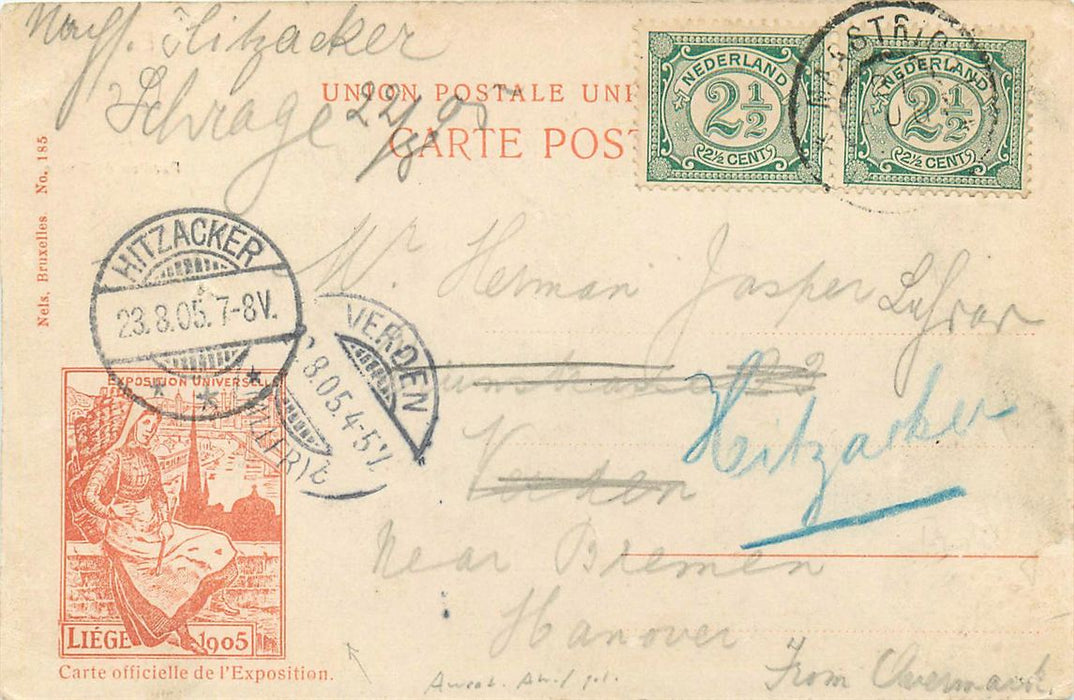 Hitzacker
Schrage 22/8 05
UNION POSTALE UNI
CARTE POST
NEDERLAND
2½
2½ CENT
NEDERLAND
2½
2½ CENT
MAASTRIC
Nels, Bruxelles No. 185
HITZACKER
23.8.05.7-8V.
VERDEN
8.05.4-5V.
(ALLER)
Mr. Herman Jasper
Verden
Hitzacker
Near Bremen
Hanover
From
EXPOSITION UNIVERSELLE
LIÉGE 1905
Carte officielle de l'Exposition.